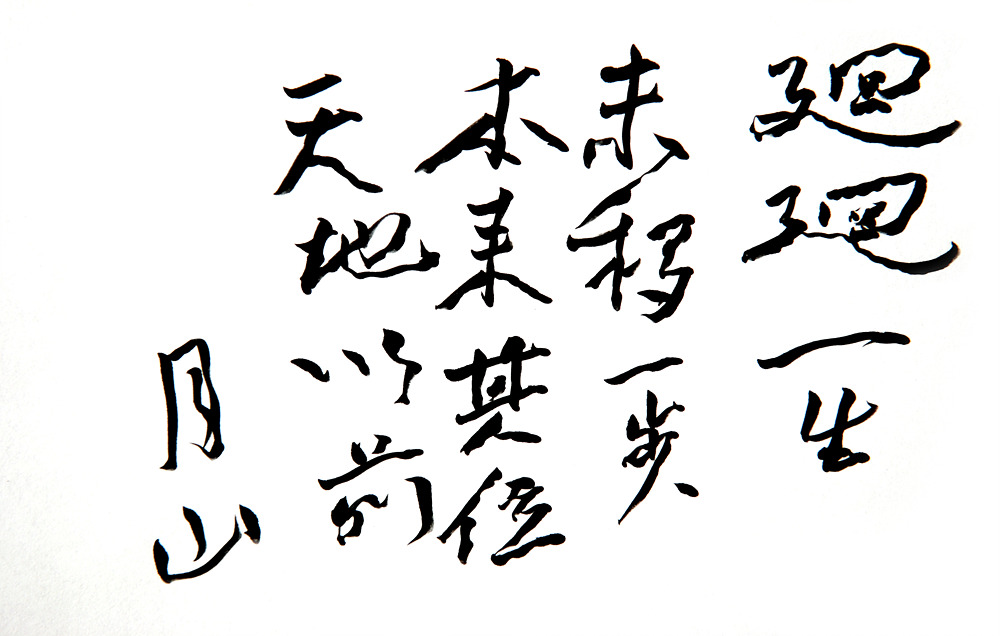 廻廻一生
未移一步
本来其位
天地以前
月山